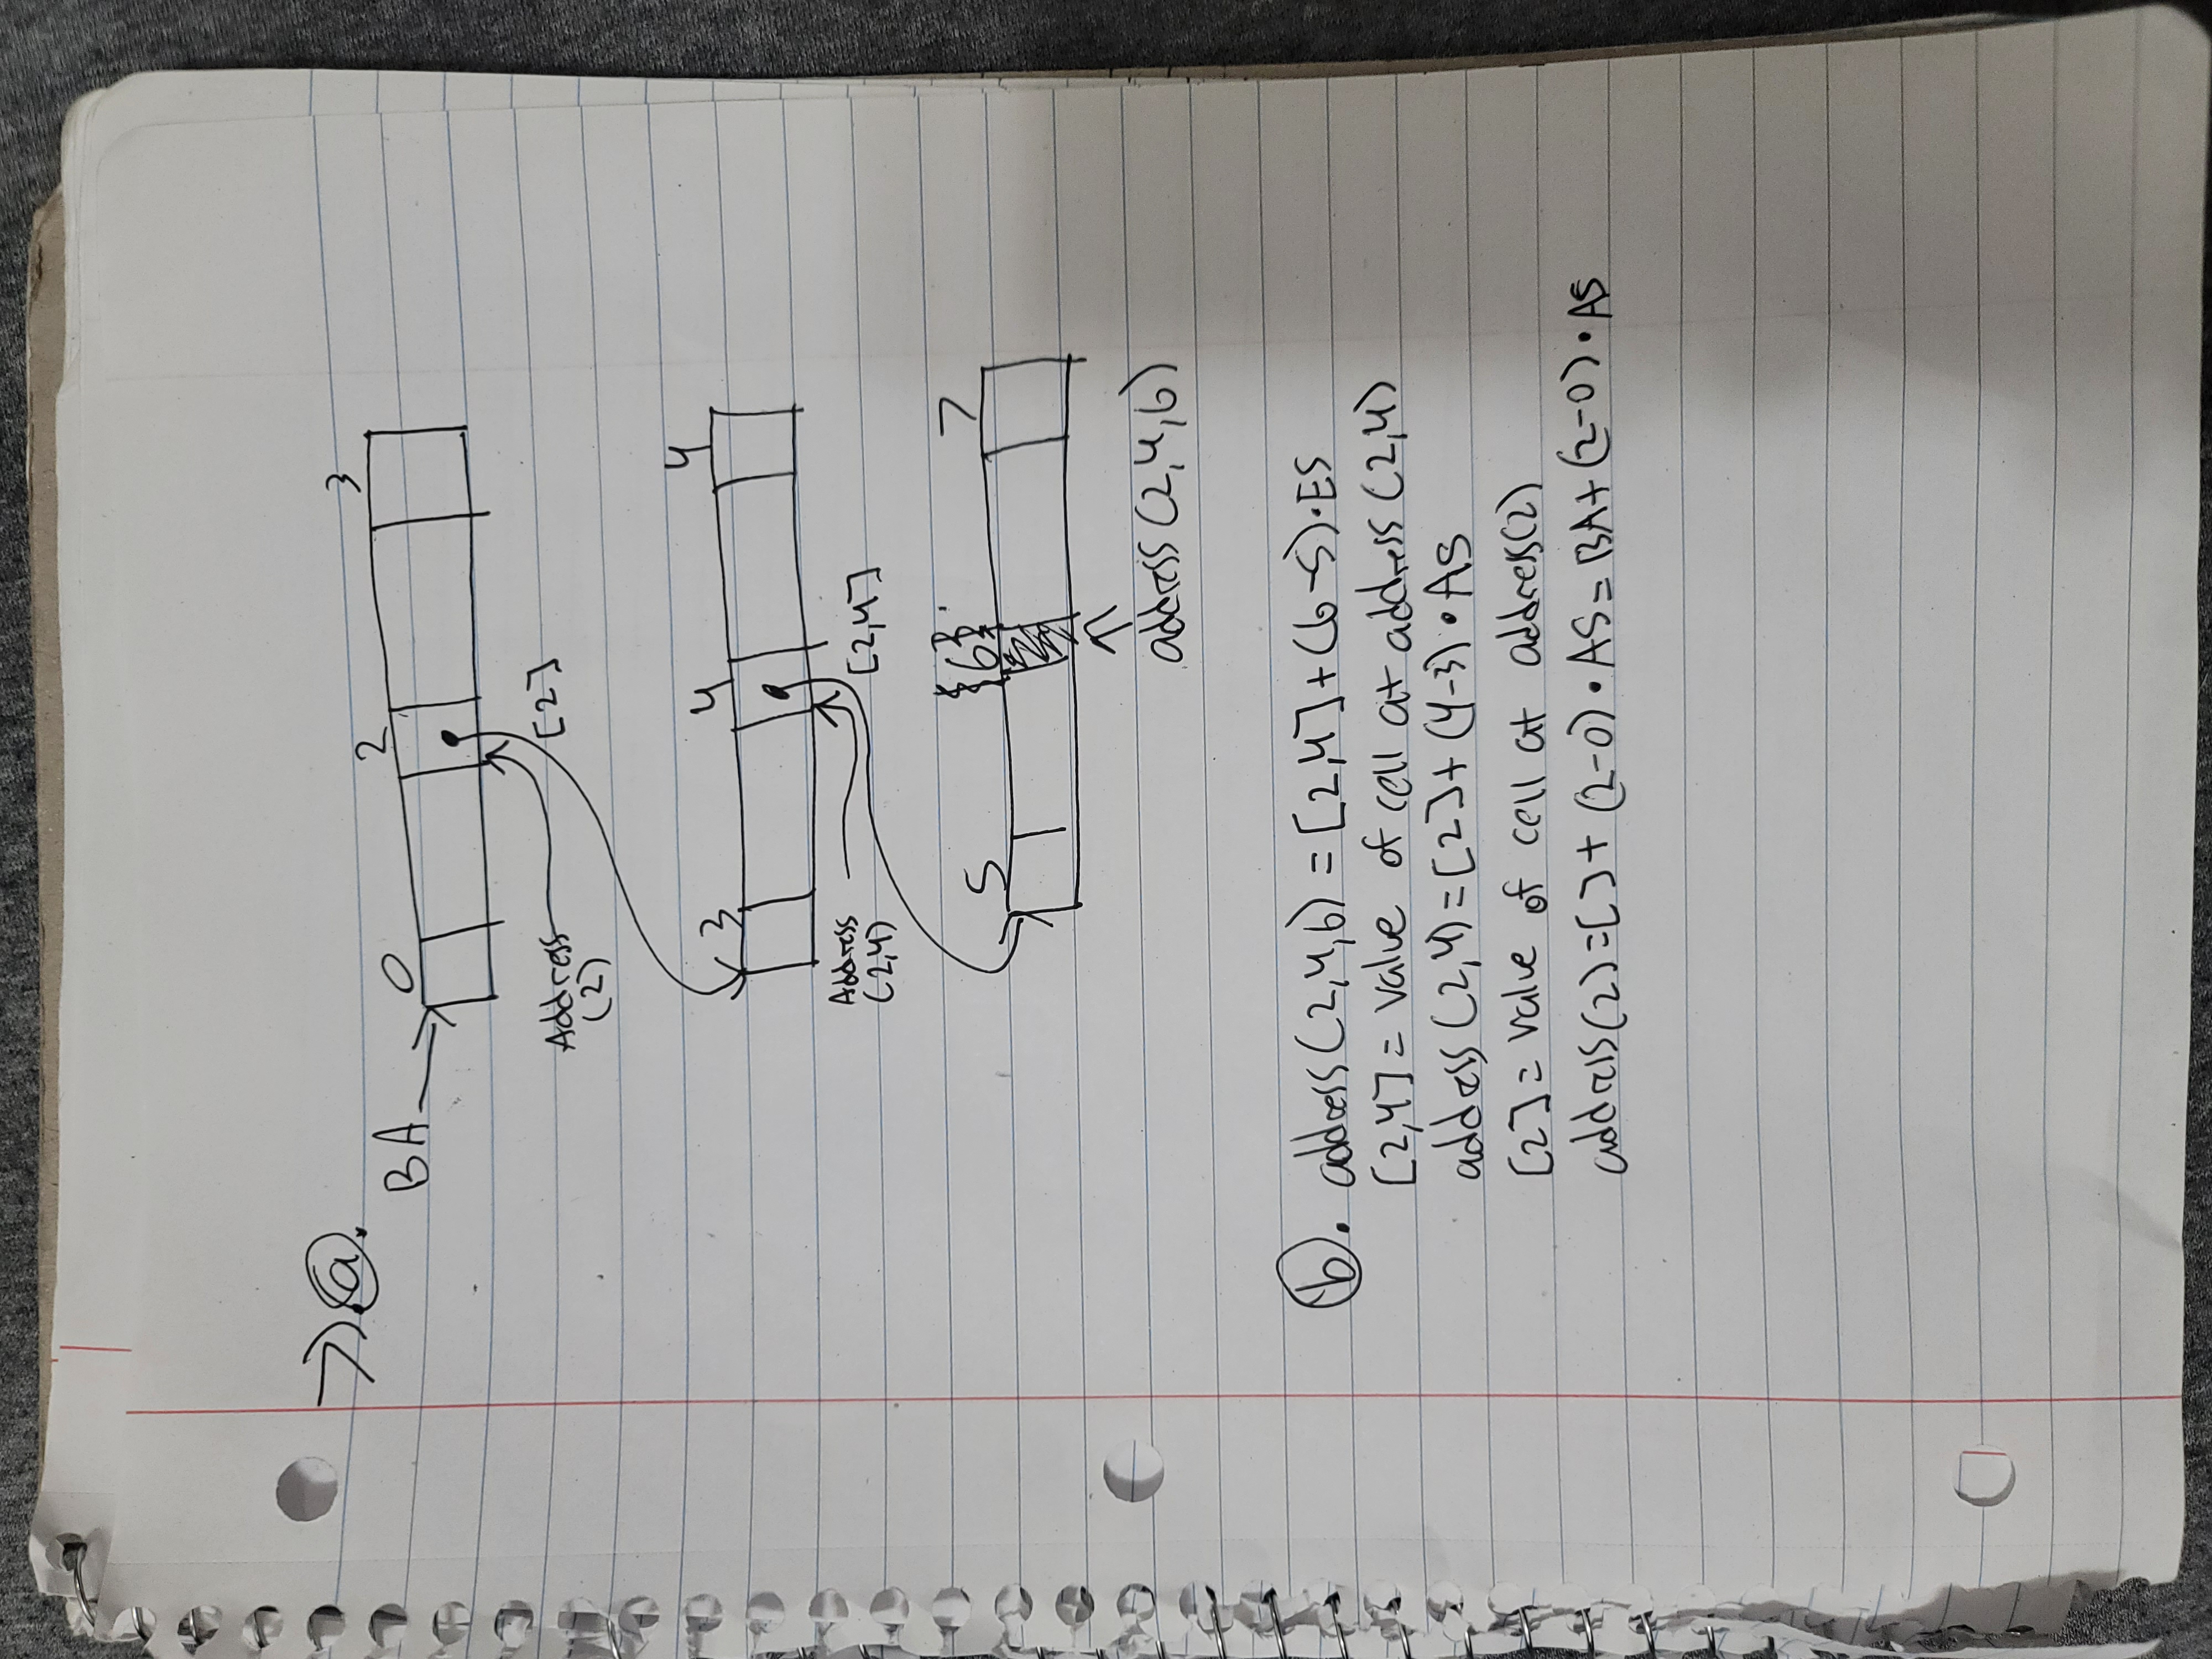 7). a.
BA 0 2 3
Address [2]
(2)
3 4 4
Address [2,4]
(2,4)
5 {6} 7
address (2,4,6)
b. address (2,4,6) = [2,4] + (6-5)•ES
[2,4] = value of cell at address (2,4)
address (2,4) = [2] + (4-3) • AS
[2] = value of cell at address(2)
address(2) = [ ] + (2-0) • AS = BA + (2-0) • AS